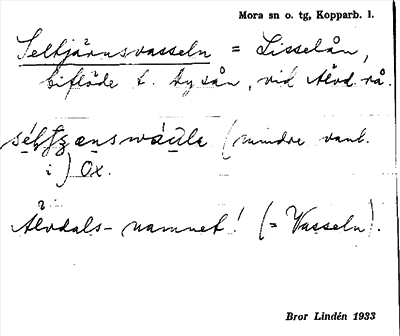 Mora sn o. tg, Kopparb. l.
Seltjärnsvasseln = Lisselån,
biflöde t. Rysån, vid Älvd rå.
(mindre vanl.
i) Ox.
Älvdals-namnet! (= Vasseln).
Bror Lindén 1933